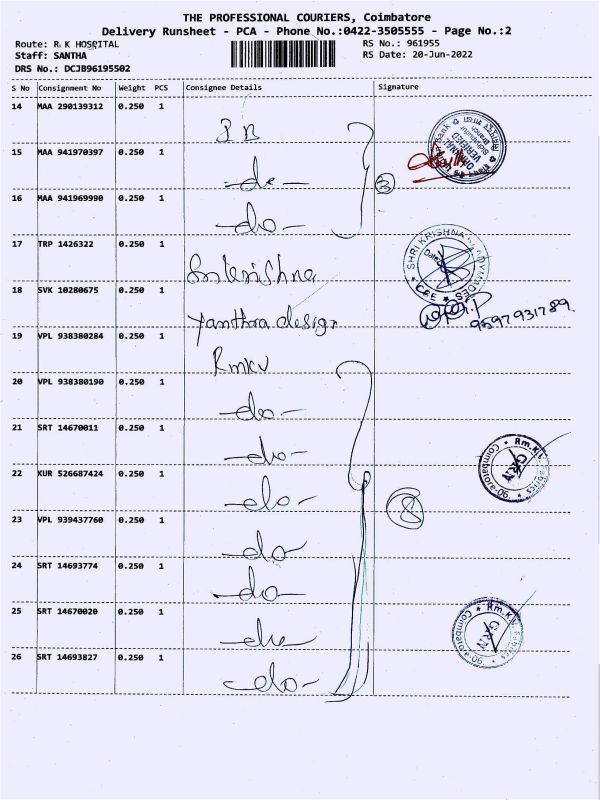 THE PROFESSIONAL COURIERS, Coimbatore
Delivery Runsheet - PCA - Phone No.:0422-3505555 - Page No.:2
Route: R K HOSPITAL
RS No.: 961955
Staff: SANTHA
RS Date: 20-Jun-2022
DRS No.: DCJB96195502
S No Consignment No Weight PCS Consignee Details Signature
14 MAA 290139312 0.250 1
15 MAA 941970397 0.250 1 -do-
ORIGINAL VERIFIED
3
16 MAA 941969990 0.250 1 -do-
17 TRP 1426322 0.250 1 Srikrishna
SHRI KRISHNA
CBE
18 SVK 10280675 0.250 1 Yanthra design
9597931789
19 VPL 938380284 0.250 1 Rmkv
20 VPL 938380190 0.250 1 -do-
21 SRT 14670011 0.250 1 -do-
Rm.K.V. Fabrics
Coimbatore-06.
GRN
22 KUR 526687424 0.250 1 -do-
8
23 VPL 939437760 0.250 1 -do-
24 SRT 14693774 0.250 1 -do-
25 SRT 14670020 0.250 1 -do-
Rm.K.V. Fabrics
Coimbatore-06.
GRN
26 SRT 14693827 0.250 1 -do-